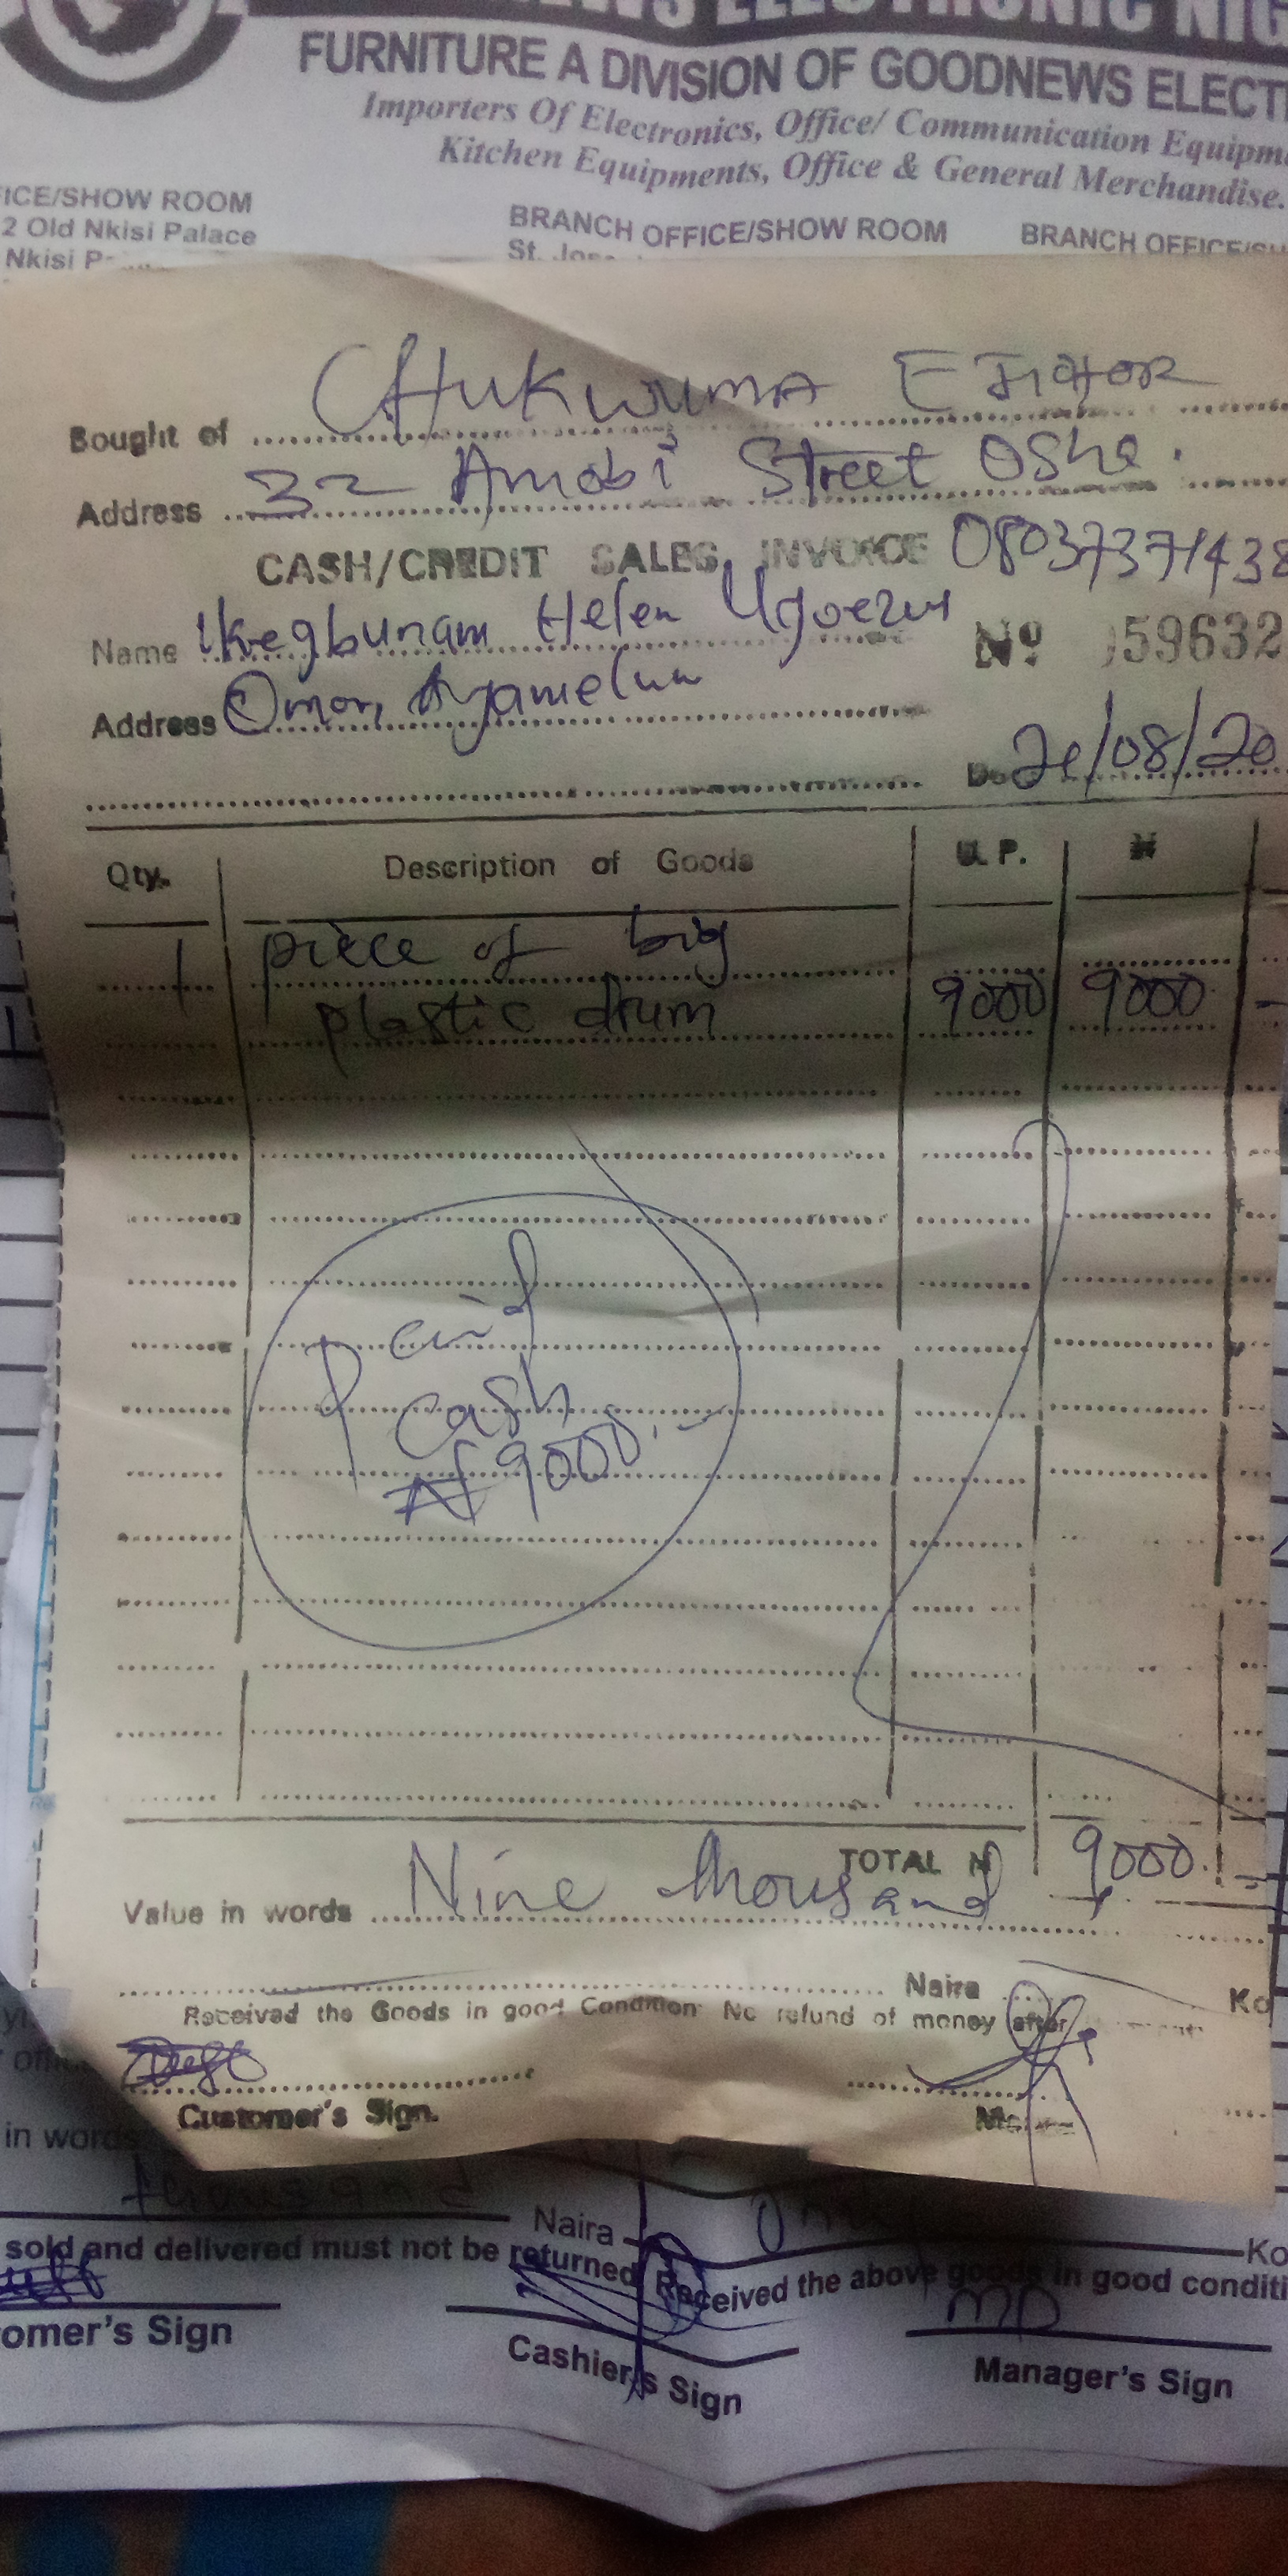 FURNITURE A DIVISION OF GOODNEWS ELECT
Importers Of Electronics, Office/ Communication Equipm
Kitchen Equipments, Office & General Merchandise.
FICE/SHOW ROOM
2 Old Nkisi Palace
Nkisi P
BRANCH OFFICE/SHOW ROOM
St. Jos
BRANCH OFFICE/SH
Bought of CHUKWUMA EJIOFOR
Address 32 Amobi Street Osha.
CASH/CREDIT SALES INVOICE 08037371438
Name Ikegbunam Helen Ugoezu
Nº 59632
Address Omor, Ayamelum
21/08/20
Qty. Description of Goods U. P. ₦
1 piece of big
plastic drum 9000 9000 -
Paid
cash
₦9000.-
TOTAL N 9000. -
Value in words Nine thousand
Naira Ko
Received the Goods in good Condition No refund of money after
Customer's Sign.
in words
thousand
Naira Ko
sold and delivered must not be returned Received the above goods in good conditi
MD
omer's Sign
Cashier's Sign
Manager's Sign